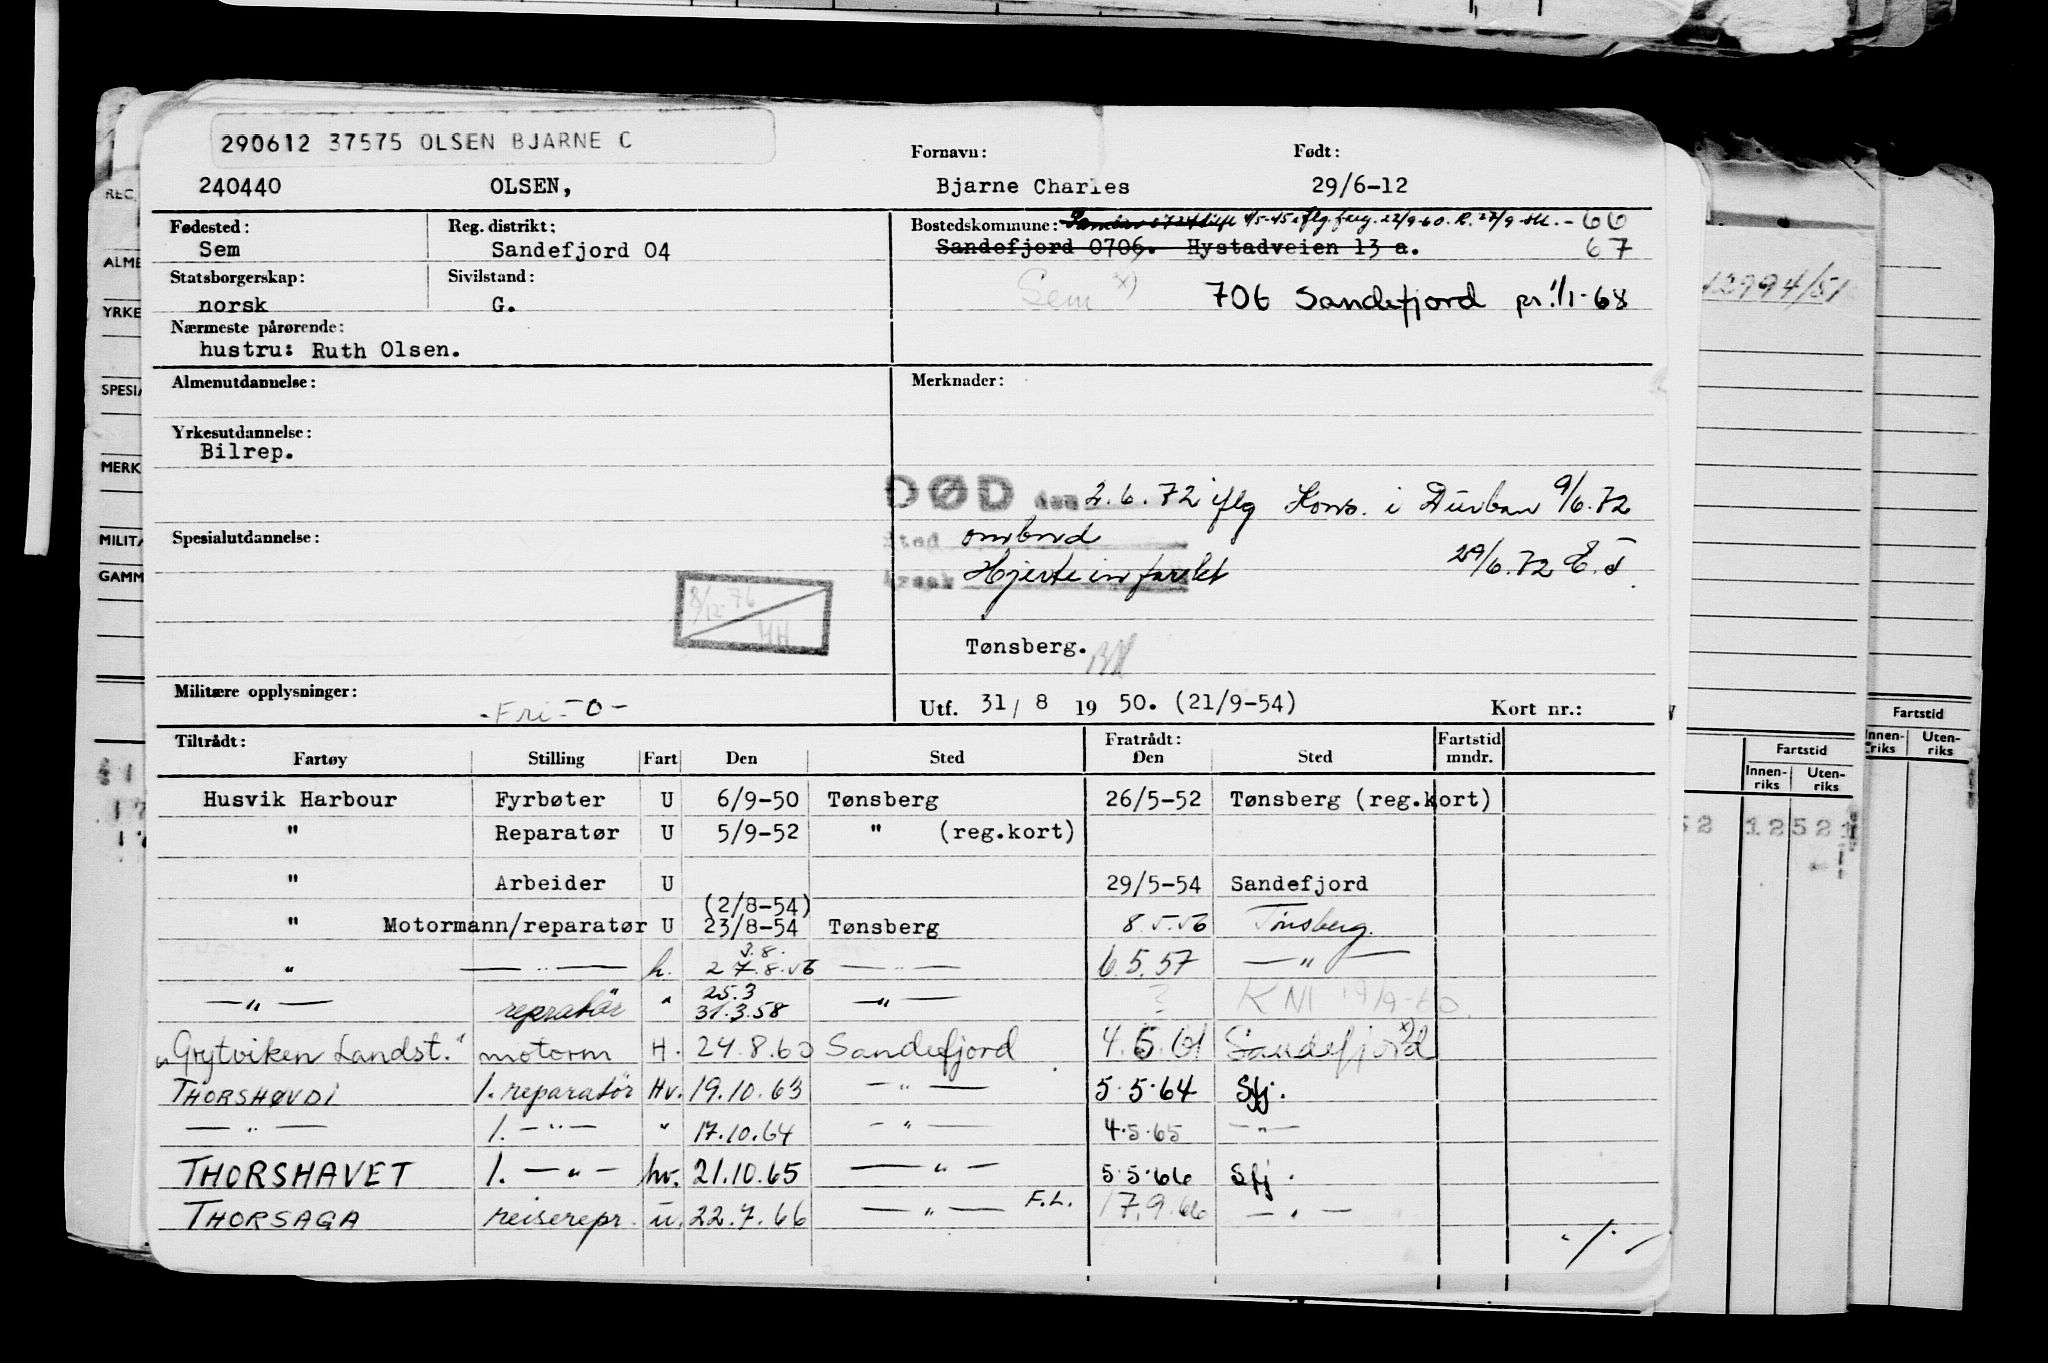 290612 37575 OLSEN BJARNE C
Fornavn: Født:
240440 OLSEN, Bjarne Charles 29/6-12
Fødested: Reg. distrikt: Bostedskommune: 4/5-45 iflg. 22/9-60. R. 22/9 - 66
Sem Sandefjord 04 Sandefjord 0706. Hystadveien 13 a. 67
Statsborgerskap: Sivilstand: Sem x) 706 Sandefjord pr. 1/1-68
norsk G.
Nærmeste pårørende:
hustru: Ruth Olsen.
Almenutdannelse: Merknader:
Yrkesutdannelse:
Bilrep.
DØD den 2.6.72 iflg Kons. i Durban 9/6.72
Spesialutdannelse: Sted ombord
Årsak Hjerteinfarkt 29/6.72 E.T.
8/12-76
HH
Tønsberg.
Militære opplysninger: -Fri-0-
Utf. 31/8 19 50. (21/9-54) Kort nr.:
Tiltrådt: Fratrådt: Fartstid
Fartøy Stilling Fart Den Sted Den Sted mndr.
Husvik Harbour Fyrbøter U 6/9-50 Tønsberg 26/5-52 Tønsberg (reg.kort)
" Reparatør U 5/9-52 " (reg.kort)
" Arbeider U 29/5-54 Sandefjord
(2/8-54)
" Motormann/reparatør U 23/8-54 Tønsberg 8.5.56 Tønsberg.
3.8.
" — " — h. 27.8.56 — " — 6.5.57 — " —
25.3
— " — repratør " 31.3.58 — " — ? KNI 19/9-60.
"Grytviken Landst." motorm H. 24.8.60 Sandefjord 4.5.61 Sandefjord x)
THORSHØVDI 1. reparatör Hv. 19.10.63 — " — 5.5.64 Sfj.
— " — 1. — " — " 17.10.64 — " — 4.5.65 — " —
THORSHAVET 1. — " — hv. 21.10.65 — " — 5.5.66 Sfj.
THORSAGA reiserepr. u. 22.7.66 — " — F.L. 17.9.66 — " —
./.
REG.
ALME
YRKE
SPESIA
MERK
MILITÆ
GAMM
12994/51
Fartstid
Innen-riks Uten-riks
Fartstid
Innen-riks Uten-riks
52 12 521